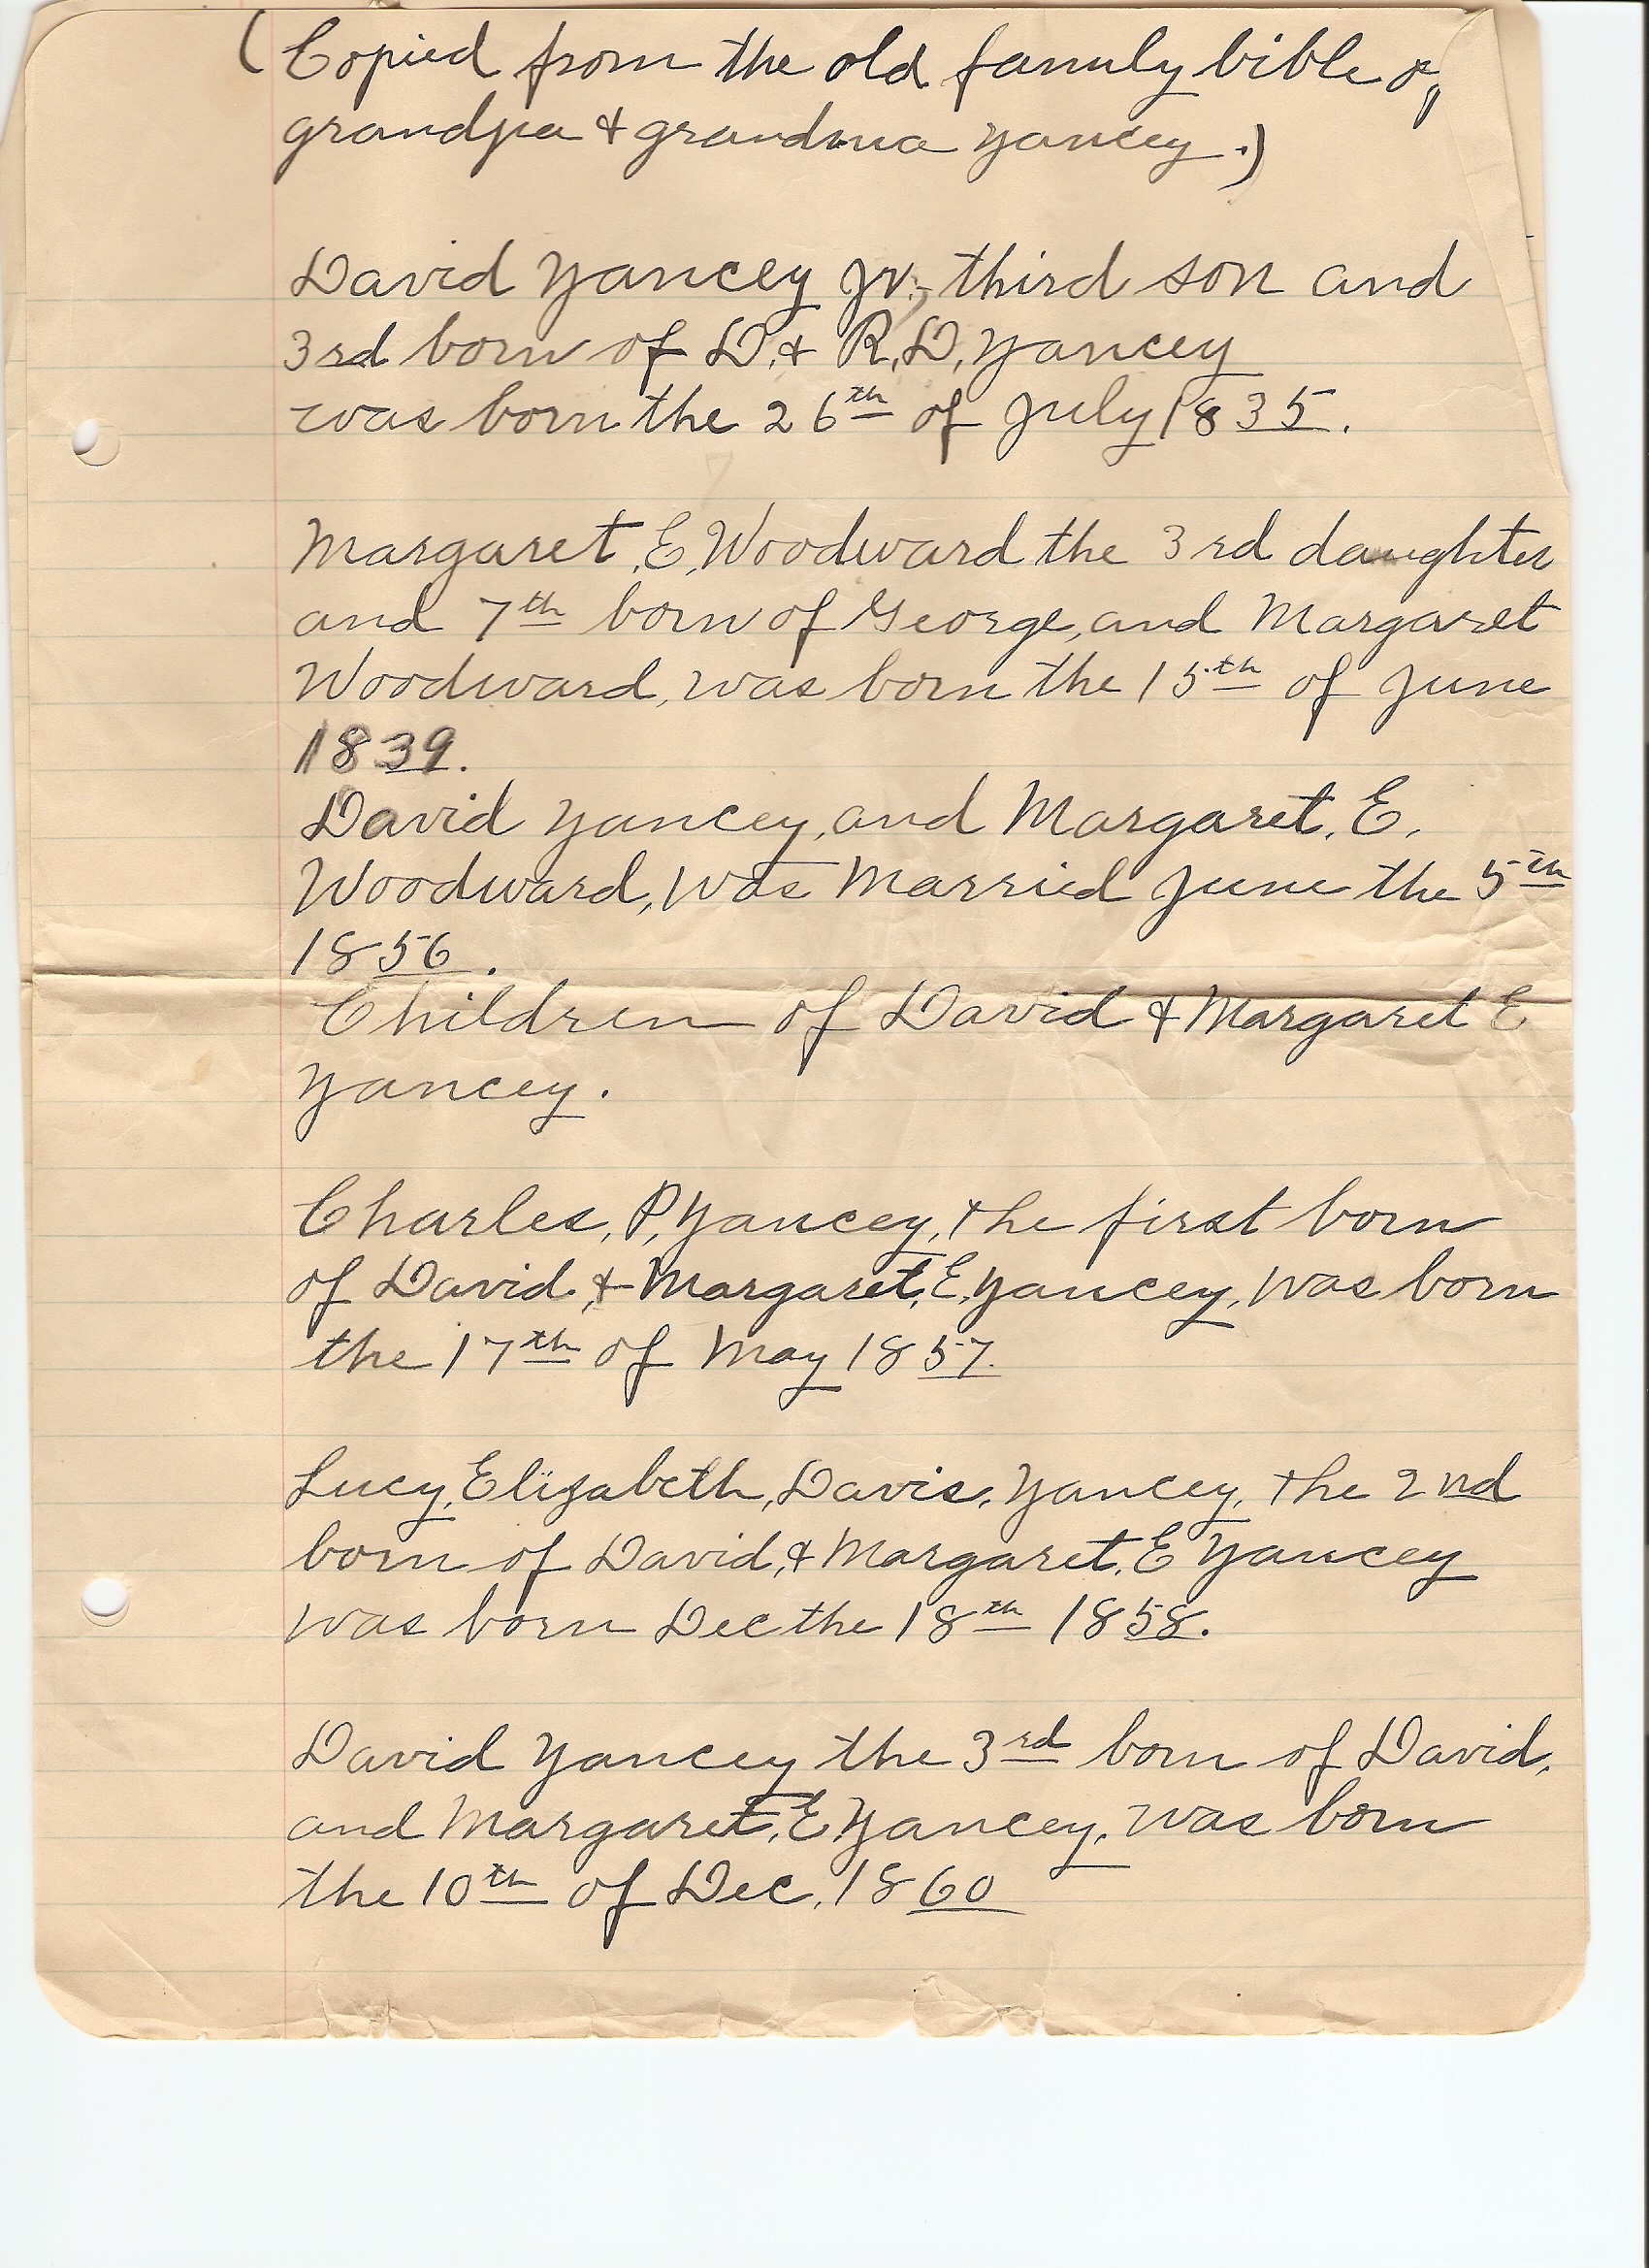 (Copied from the old family bible of
grandpa & grandma Yancey.)
David Yancey Jr., third son and
3rd born of D. & R. D. Yancey
was born the 26th of July 1835.
Margaret, E, Woodward the 3rd daughter
and 7th born of George, and Margaret
Woodward, was born the 15th of June
1839.
David Yancey, and Margaret. E.
Woodward, was Married June the 5th
1856.
Children of David & Margaret E
Yancey.
Charles, P, Yancey, the first born
of David, & Margaret, E, Yancey, was born
the 17th of May 1857.
Lucy, Elizabeth, Davis, Yancey, the 2nd
born of David, & Margaret, E Yancey
was born Dec the 18th 1858.
David Yancey the 3rd born of David,
and Margaret, E, Yancey, was born
the 10th of Dec, 1860